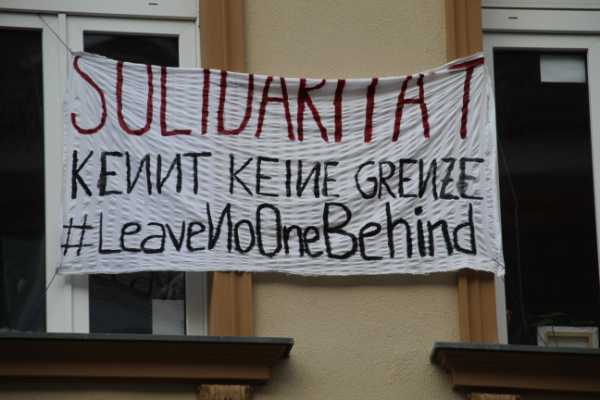 SOLIDARITÄT
KENNT KEINE GRENZE
#LeaveNoOneBehind